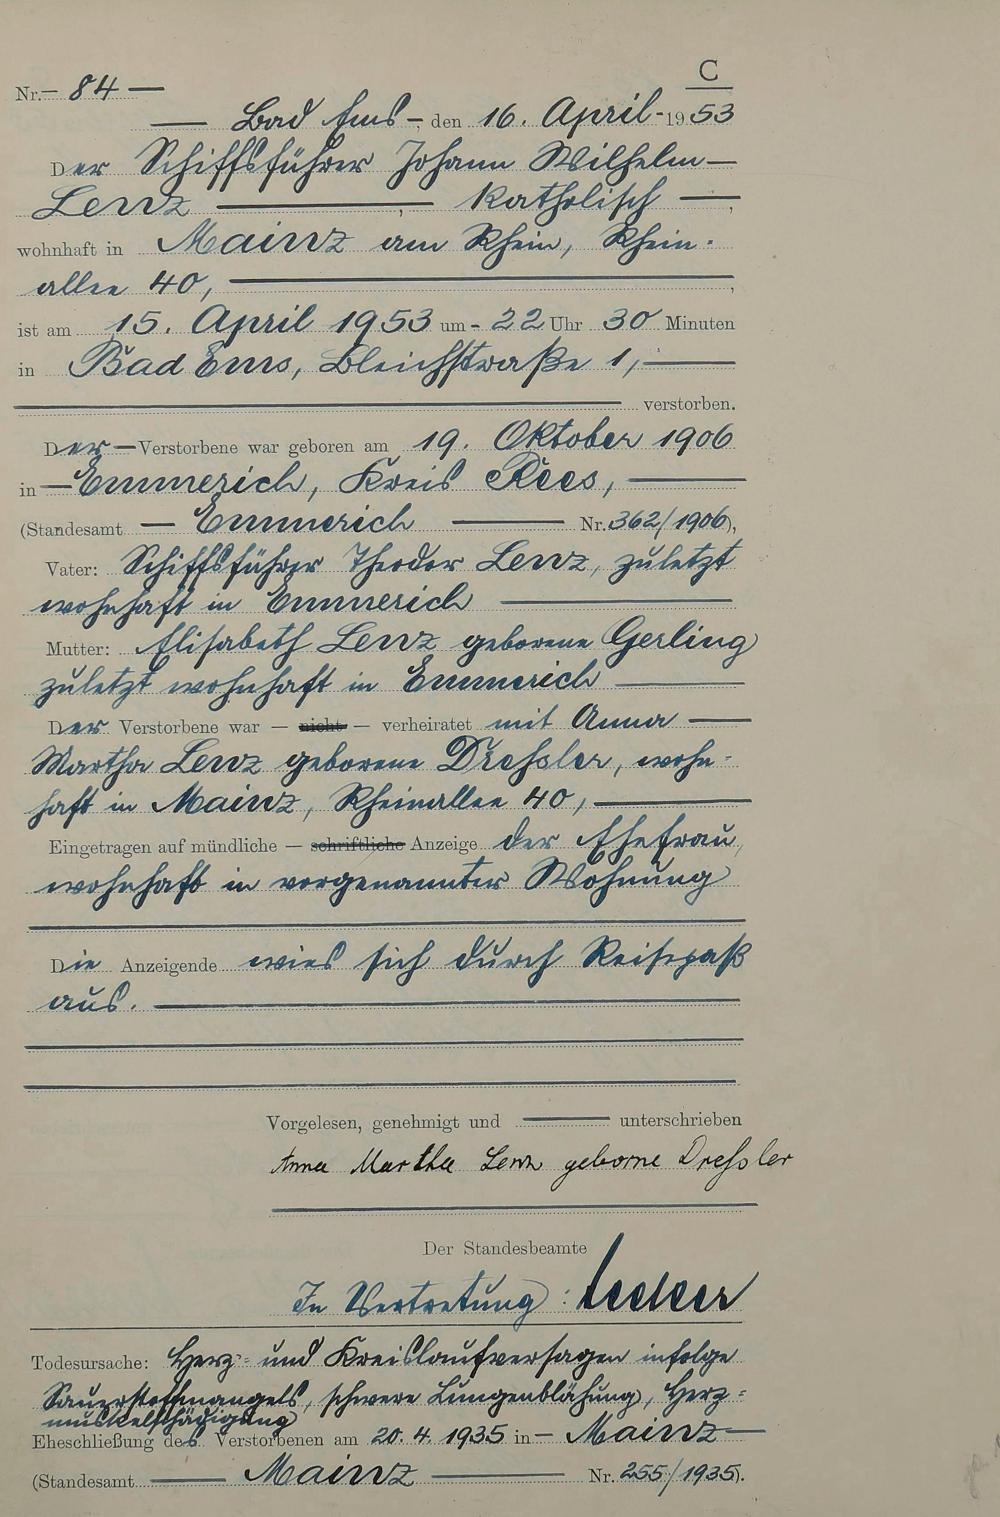 C
Nr. — 84 —
— Bad Ems —, den 16. April - 1953
Der Schiffsführer Johann Wilhelm —
Lenz —, katholisch —,
wohnhaft in Mainz am Rhein, Rhein-
allee 40, —,
ist am 15. April 1953 um - 22 Uhr 30 Minuten
in Bad Ems, Bleichstraße 1, —
— verstorben.
Der — Verstorbene war geboren am 19. Oktober 1906
in — Emmerich, Kreis Rees, —
(Standesamt — Emmerich — Nr. 362/1906),
Vater: Schiffsführer Theodor Lenz, zuletzt
wohnhaft in Emmerich —
Mutter: Elisabeth Lenz geborene Gerling
zuletzt wohnhaft in Emmerich —
Der Verstorbene war — nicht — verheiratet mit Anna —
Martha Lenz geborene Dressler, wohn-
haft in Mainz, Rheinallee 40, —
Eingetragen auf mündliche — schriftliche Anzeige der Ehefrau,
wohnhaft in vorgenannter Wohnung
Die Anzeigende wies sich durch Reisepaß
aus. —
Vorgelesen, genehmigt und — unterschrieben
Anna Martha Lenz geborne Dressler
Der Standesbeamte
In Vertretung:
Todesursache: Herz- und Kreislaufversagen infolge
Sauerstoffmangels, schwere Lungenblähung, Herz-
muskelschädigung
Eheschließung des Verstorbenen am 20. 4. 1935 in — Mainz —
(Standesamt — Mainz — Nr. 255/1935).